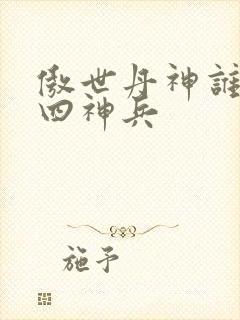 傲世丹神誰
四神兵
施予